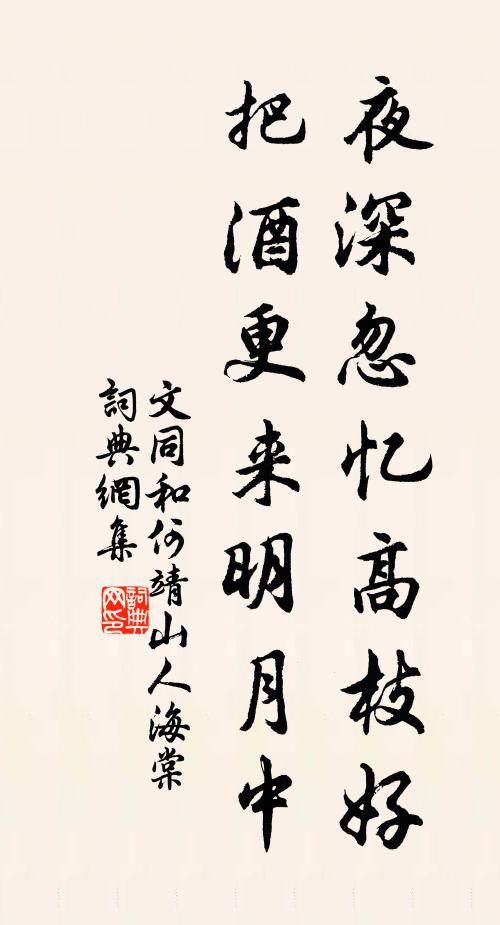 夜深忽忆高枝好
把酒更来明月中
文同和何靖山人海棠
詞典網集
詞典网印